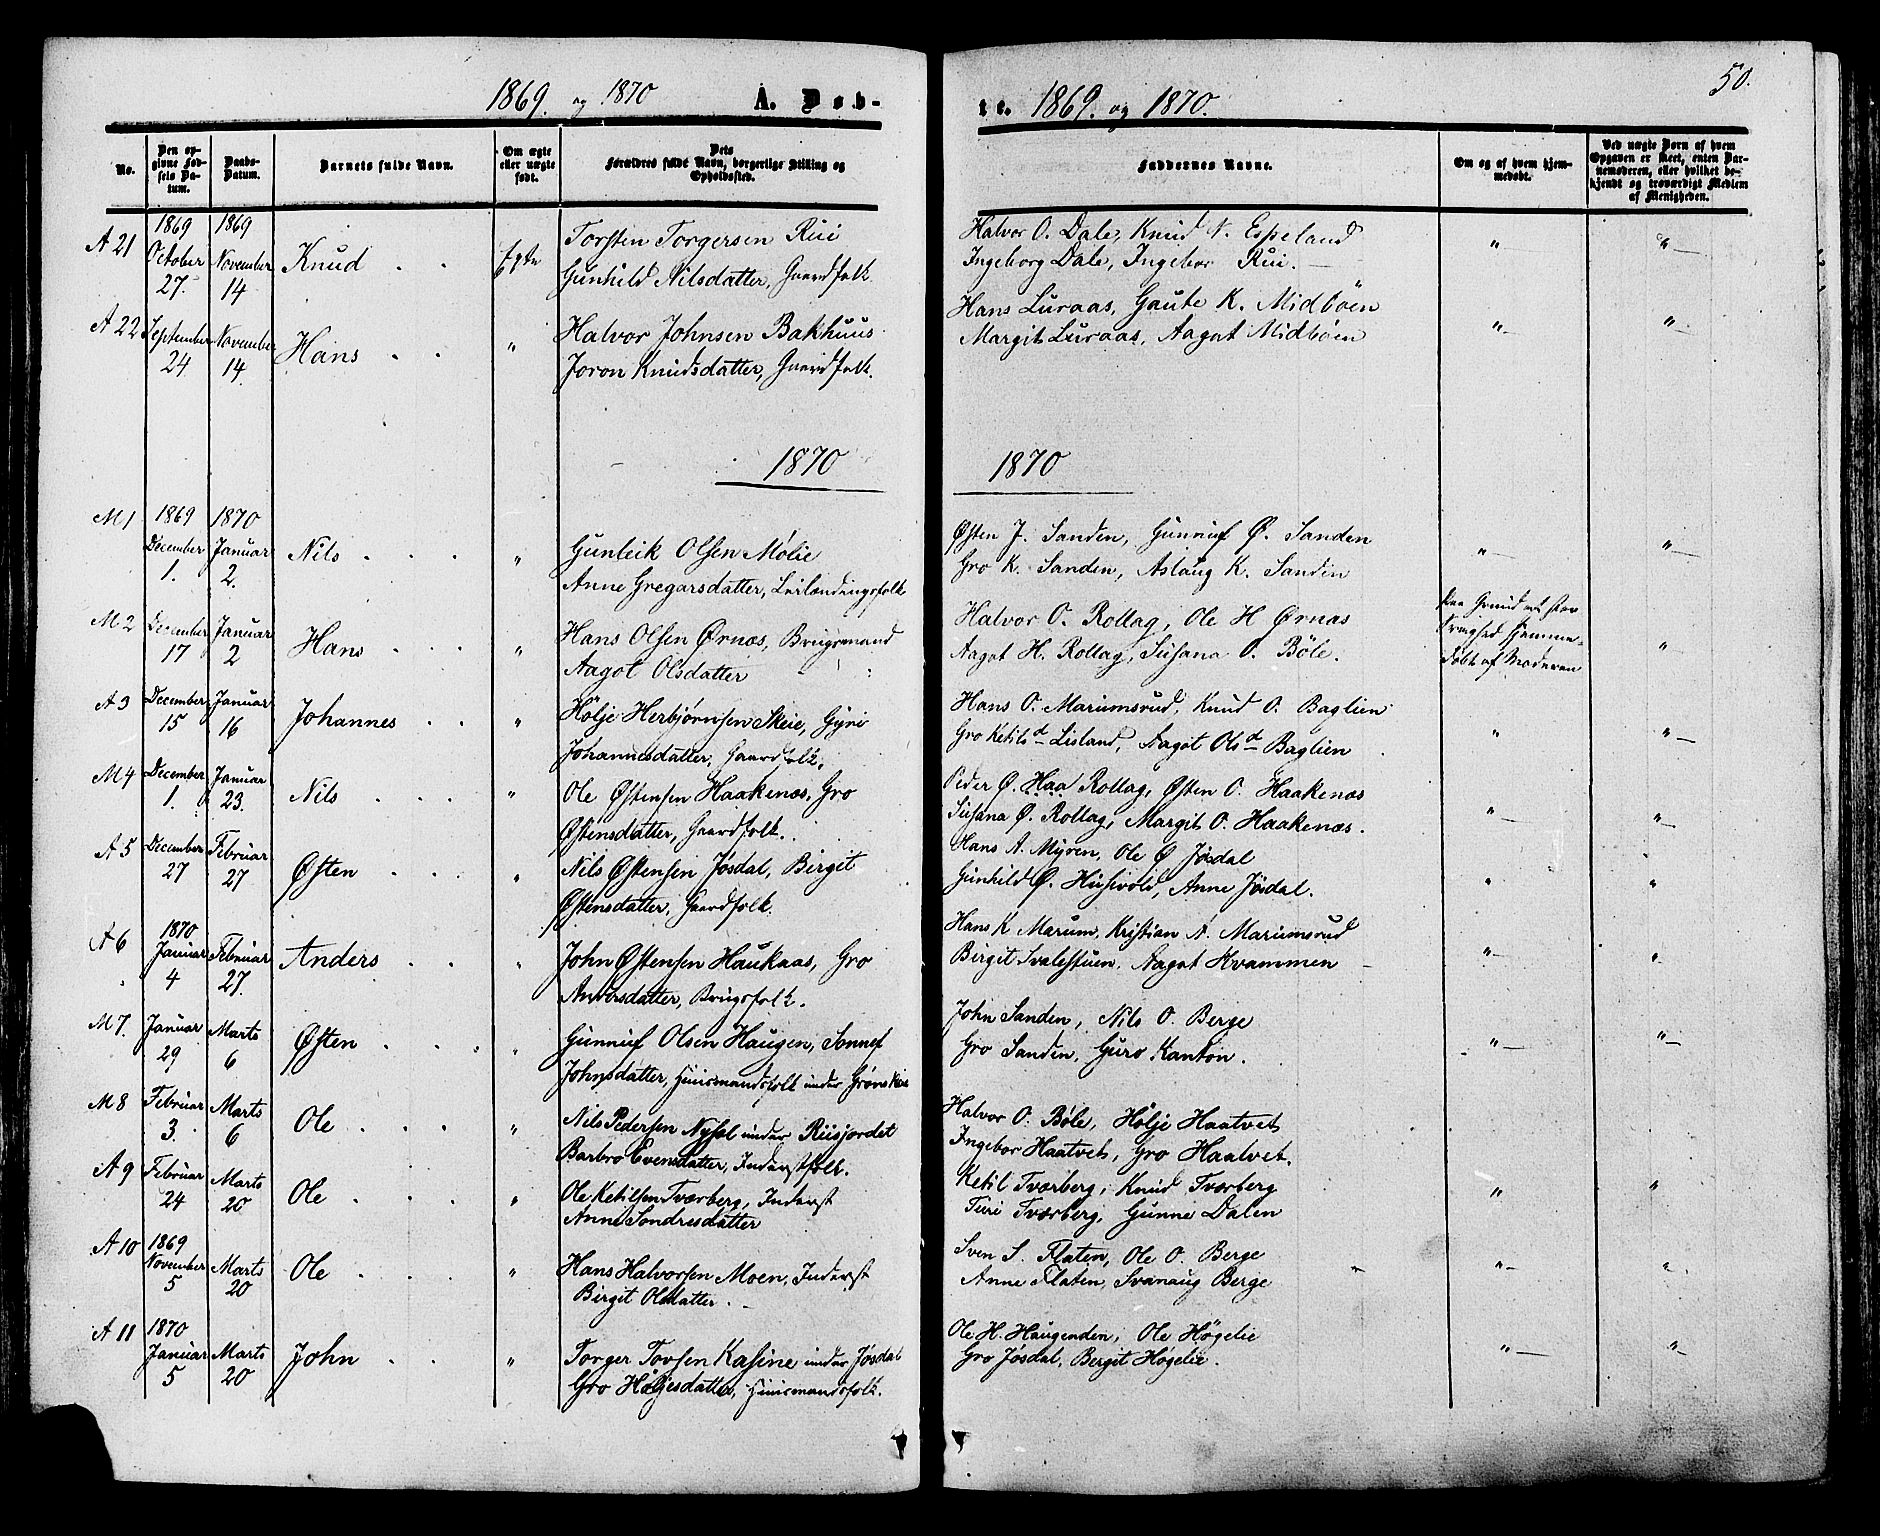 1869. og 1870 A. Døb-
No.
Den op-
givne Fød-
sels Da-
tum.
Daabs-
Datum.
Barnets fulde Navn.
Om ægte
eller uægte
født.
Dets
Forældres fulde Navn, borgerlige Stilling og
Opholdssted.
A 21
1869
October
27.
1869
November
14
Knud
Ægte
Torsten Torgersen Rui
Gunhild Nilsdatter, Gaardfolk.
A 22
September
24
November
14.
Hans
"
Halvor Johnsen Bakhuus
Joron Knudsdatter, Gaardfolk.
1870
M 1
1869
December
1.
1870
Januar
2.
Nils
"
Gunleik Olsen Mølie
Anne Gregarsdatter, Leilændingsfolk
M 2
December
17
Januar
2
Hans
"
Hans Olsen Ørnæs, Brugsmand
Aagot Olsdatter
A 3
December
15
Januar
16
Johannes
"
Hölje Herbjørnsen Skeie, Gyri
Johannesdatter, Gaardfolk.
M 4
December
1.
Januar
23.
Nils
"
Ole Østensen Haakenæs, Gro
Østensdatter, Gaardfolk.
A 5
December
27
Februar
27
Østen
"
Nils Østensen Jøsdal, Birgit
Østensdatter, Gaardfolk.
A 6
1870
Januar
4
Februar
27.
Anders
"
John Østensen Haukaas, Gro
Andersdatter, Brugsfolk.
M 7.
Januar
29
Marts
6
Østen
"
Gunnuf Olsen Haugen, Sønnef
Johnsdatter, Huusmandsfolk under Grønskei
M 8
Februar
3.
Marts
6
Ole
"
Nils Pedersen under Ruisjordet
Barbro Evensdatter, Inderstfolk.
A 9
Februar
24
Marts
20
Ole
"
Ole Ketilsen Tværberg, Inderst
Anne Sondresdatter
A 10
1869
November
5
Marts
20
Ole
"
Hans Halvorsen Moen, Inderst
Birgit Olsdatter.
A 11
1870
Januar
5
Marts
20
John
"
Torger Tovsen Kasine under Jøsdal
Gro Høljesdatter, Huusmandsfolk.
te. 1869. og 1870.
50.
Faddernes Navne.
Om og af hvem hjem-
medøbt.
Ved uægte Børn af hvem
Opgaven er skeet, enten Bar-
nemoderen, eller hvilket be-
kjendt og troværdigt Medlem
af Menigheden.
Halvor O. Dale, Knud N. Espeland
Ingeborg Dale, Ingebor Rui.
Hans Luraas, Gaute K. Midböen
Margit Luraas, Aagot Midböen
1870
Østen J. Sanden, Gunnuf Ø. Sanden
Gro K. Sanden, Aslaug K. Sanden
Halvor O. Rollag, Ole H Ørnas
Aagot H. Rollag, Susana O. Böle.
Paa Grund af stor
Svaghed hjemme-
døbt af Moderen
Hans O. Marumsrud, Knud O. Baglien
Gro Ketilsd Lisland, Aagot Olsd Baglien
Peder Ø. Haa Rollag, Østen O. Haakenæs
Susana Ø. Rollag, Margit O. Haakenæs.
Hans A. Myren, Ole Ø Jøsdal
Gunhild Ø. Husevold, Anne Jøsdal.
Hans K Marum, Kristian A. Marumsrud
Birgit Svalestuen, Aagot Kvammen
John Sanden, Nils O. Berge
Gro Sanden, Guro Kanton.
Halvor O. Bøle, Hölje Haatvet
Ingebor Haatvet, Gro Haatvet.
Ketil Tværberg, Knud Tværberg
Turi Tværberg, Gunne Dalen
Sven S. Flaten, Ole O. Berge
Anne Flaten, Svanaug Berge
Ole H. Haugenden, Ole Högelie
Gro Jøsdal, Bergit Høgelie.